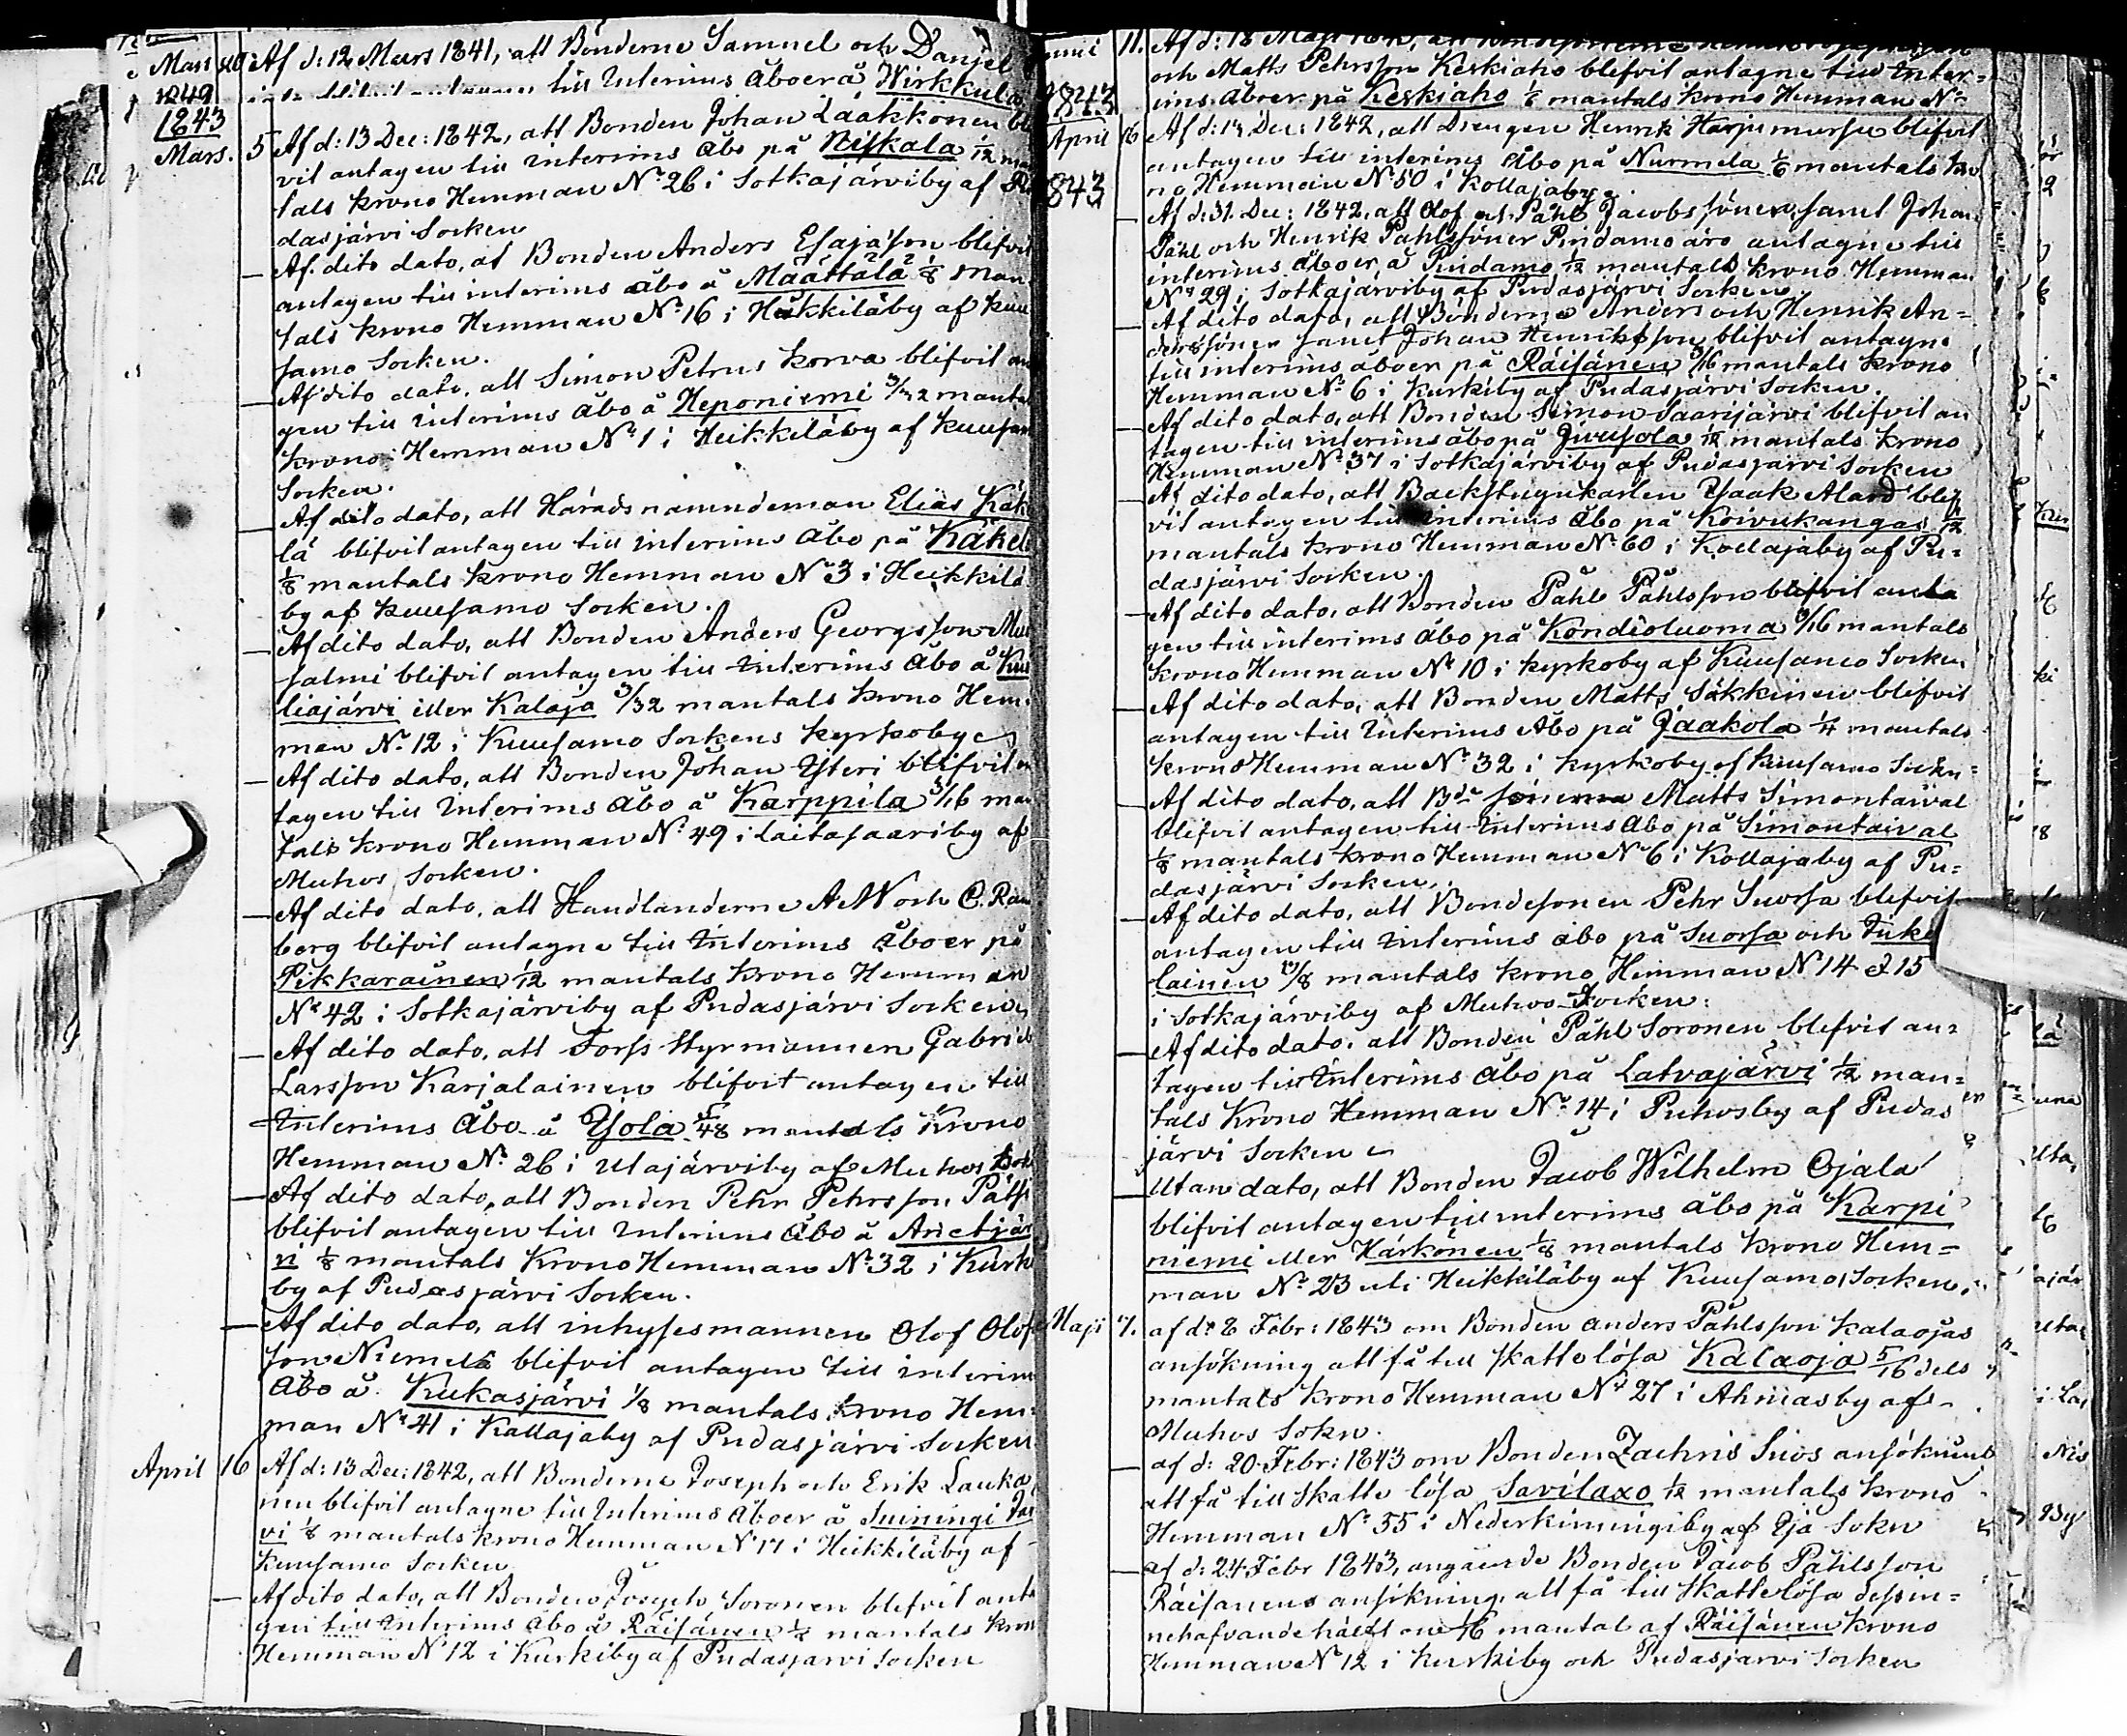 Mars 20 Af d: 12 Mars 1841, att Bönderne Samuel och Daniel
1842 till Interims Åboer å Wirkkula
1843
Mars. 5 Af d: 13 Dec: 1842, att Bonden Johan Laakkonen
vit antagen till interims Åbo på Niskala 1/12
tals krono Hemman No 26 i Sotkajärviby af
dasjärvi Socken
— Af dito dato, at Bonden Anders Esajasson blifvit
antagen till interims åbo å Määttälä 1/8 man
tals krono Hemman No 16 i Heikkiläby af Kuu
samo Socken.
— Af dito dato, att Simon Petrus Korva blifvit
gen till interims Åbo å Heponiemi 3/32 manta
krono Hemman No 1 i Heikkiläby af Kuusam
Socken.
— Af dito dato, att Häradsnämndeman Elias Käk
lä blifvit antagen till interims Åbo på Käkel
1/8 mantals krono Hemman No 3 i Heikkilä
by af Kuusamo Socken.
— Af dito dato, att Bonden Anders Georgsson
salmi blifvit antagen till Interims Åbo å
liajärvi eller Kalaja 3/32 mantals krono Hem-
man No 12 i Kuusamo Sockens kyrkoby
— Af dito dato, att Bonden Johan Ylteri blifvit
tagen till Interims Åbo å Karppila 3/16 man
tals krono Hemman No 49 i Laitasaariby af
Muhos Socken.
— Af dito dato, att Handlanderne A W och C. Ran
berg blifvit antagne till Interims Åboer på
Pikkarainen 1/12 mantals krono Hemman
No 42 i Sotkajärviby af Pudasjärvi Socken
— Af dito dato, att Forss Styrmannen Gabriel
Larsson Karjalainen blifvit antagen till
Interims Åbo å Yjola 5/48 mantals Krono
Hemman No 26 i Utajärviby af Muhos Sock
— Af dito dato, att Bonden Pehr Pehrsson
blifvit antagen till Interims Åbo å
1/8 mantals Krono Hemman No 32 i Kurk
by af Pudasjärvi Socken.
— Af dito dato, att inhysesmannen Olof Olofs
son Niemelä blifvit antagen till interim
Åbo å Kukasjärvi 1/8 mantals krono Hem-
man No 41 i Kollajaby af Pudasjärvi Socken
April 16 Af d: 13 Dec: 1842, att Bönderne Joseph och Erik Lauka
nen blifvit antagne till Interims Åboer å Suiningi
vi 1/8 mantals krono Hemman No 17 i Heikkiläby af
Kuusamo Socken
— Af dito dato, att Bonden Joseph Soronen blifvit anta
gen till Interims Åbo å Räisänen mantals kron
Hemman No 12 i Kurkiby af Pudasjärvi Socken
11. Af d: 18
och Matts Pehrsson Keskiaho blifvit antagne till Inter-
1843 ims Åboer på Keskiaho 1/8 mantals krono Hemman No
April 16 Af d: 14 Dec: 1842, att Drengen Henrik Harjumursu blifvit
antagen till interims Åbo på Nurmela 1/6 mantals kro
843 no Hemman No 50 i Kollajaby.
— Af d: 31 Dec: 1842, att Olof och Påhl Jacobssöner, samt Johan
Påhl och Henrik Påhlssöner Pindamo äro antagne till
interims åboer å Pindamo 1/12 mantals krono Hemman
No 29 i Sotkajärviby af Pudasjärvi Socken.
— Af dito dato, att Bönderne Anders och Henrik An-
derssöner samt Johan Henriksson blifvit antagne
till interims åboer på Räisänen 3/16 mantals krono
Hemman No 6 i Kurkiby af Pudasjärvi Socken.
— Af dito dato, att Bonden Simon Saarijärvi blifvit an
tagen till interims åbo på Jivusola 1/12 mantals krono
Hemman No 37 i Sotkajärviby af Pudasjärvi Socken
— Af dito dato, att Backstugukarlen Isaak Alard blif
vit antagen till interims Åbo på Koivukangas 1/12
mantals krono Hemman No 60 i Kollajaby af Pu-
dasjärvi Socken.
— Af dito dato, att Bonden Påhl Påhlsson blifvit anta
gen till interims Åbo på Kondioluoma 3/16 mantals
krono Hemman No 10 i kyrkoby af Kuusamo Socken
— Af dito dato, att Bonden Matts Säkkinen blifvit
antagen till Interims Åbo på Jaakola 1/4 mantals
krono Hemman No 32 i kyrkoby af Kuusamo Socken
— Af dito dato, att Matts Simontaival
blifvit antagen till Interims Åbo på Simontaival
1/8 mantals krono Hemman No 6 i Kollajaby af Pu-
dasjärvi Socken.
— Af dito dato, att Bondesonen Pehr Suorsa blifvit
antagen till Interims åbo på Suorsa och
lainen mantals krono Hemman No 14 & 15
i Sotkajärviby af Muhos Socken:
— Af dito dato, att Bonden Påhl Soronen blifvit an-
tagen till Interims Åbo på Latvajärvi 1/12 man-
tals Krono Hemman No 14 i Puhosby af Pudas
järvi Socken
— Utan dato, att Bonden Jacob Wilhelm Ojala
blifvit antagen till interims åbo på Karpi
niemi eller Härkönen 1/8 mantals krono Hem-
man No 23 uti Heikkiläby af Kuusamo Socken.
Maji 7. af d: 8 Febr: 1843 om Bonden Anders Påhlsson Kalaojas
ansökning att få till skatte lösa Kalaoja 5/16 dels
mantals Krono Hemman No 27 i Ahmasby af
Muhos Sokn.
— af d: 20 Febr: 1843 om Bonden Zachris Sivos ansökning
att få till Skatte lösa Savilaxo 1/12 mantals krono
Hemman No 55 i Nederkimingiby af Ijå Sokn
— af d: 24 Febr 1843, angående Bonden Jacob Påhlsson
Räisänens ansökning, att få till skatte lösa dessin-
nehafvande hälft om 1/16 mantal af Räisänen krono
Hemman No 12 i Kurkiby och Pudasjärvi Socken